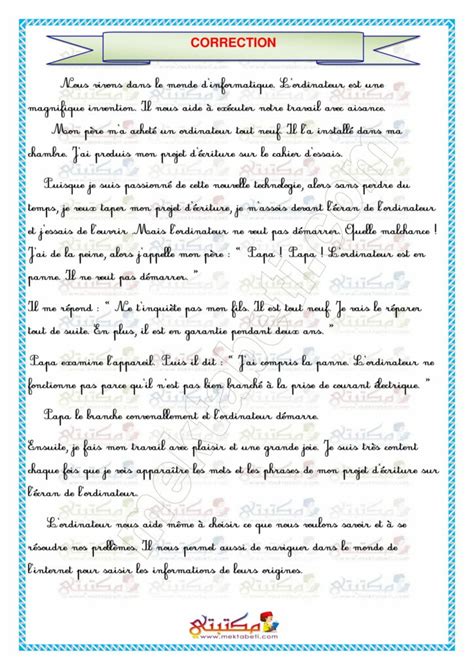 CORRECTION
Nous vivons dans le monde d'informatique. L'ordinateur est une
magnifique invention. Il nous aide à exécuter notre travail avec aisance.
Mon père m'a acheté un ordinateur tout neuf. Il l'a installé dans ma
chambre. J'ai produis mon projet d'écriture sur le cahier d'essais.
Puisque je suis passionné de cette nouvelle technologie, alors sans perdre du
temps, je veux taper mon projet d'écriture, je m'assois devant l'écran de l'ordinateur
et j'essais de l'ouvrir. Mais l'ordinateur ne veut pas démarrer. Quelle malchance !
J'ai de la peine, alors j'appelle mon père : “ Papa ! Papa ! L'ordinateur est en
panne. Il ne veut pas démarrer. ”
Il me répond : “ Ne t'inquiète pas mon fils. Il est tout neuf. Je vais le réparer
tout de suite. En plus, il est en garantie pendant deux ans. ”
Papa examine l'appareil. Puis il dit : “ J'ai compris la panne. L'ordinateur ne
fonctionne pas parce qu'il n'est pas bien branché à la prise de courant électrique. ”
Papa le branche convenablement et l'ordinateur démarre.
Ensuite, je fais mon travail avec plaisir et une grande joie. Je suis très content
chaque fois que je vois apparaître les mots et les phrases de mon projet d'écriture sur
l'écran de l'ordinateur.
L'ordinateur nous aide même à choisir ce que nous voulons savoir et à se
résoudre nos problèmes. Il nous permet aussi de naviguer dans le monde de
l'internet pour saisir les informations de leurs origines.
مكتبتي
www.mektabeti.com